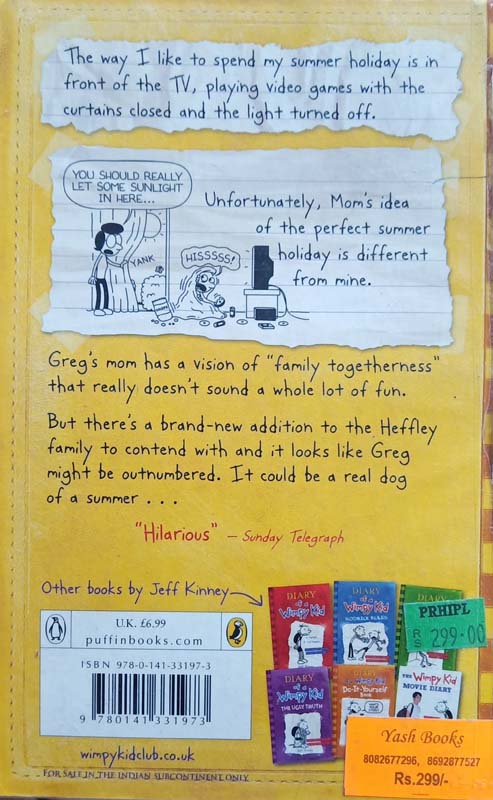 The way I like to spend my summer holiday is in
front of the TV, playing video games with the
curtains closed and the light turned off.
YOU SHOULD REALLY
LET SOME SUNLIGHT
IN HERE...
YANK
HISSSSS!
Unfortunately, Mom's idea
of the perfect summer
holiday is different
from mine.
Greg's mom has a vision of "family togetherness"
that really doesn't sound a whole lot of fun.
But there's a brand-new addition to the Heffley
family to contend with and it looks like Greg
might be outnumbered. It could be a real dog
of a summer . . .
"Hilarious" – Sunday Telegraph
Other books by Jeff Kinney
U.K. £6.99
puffinbooks.com
ISBN 978-0-141-33197-3
9 780141 331973
wimpykidclub.co.uk
FOR SALE IN THE INDIAN SUBCONTINENT ONLY
DIARY
of a
Wimpy Kid
DIARY
of a
Wimpy Kid
RODRICK RULES
DIARY
PRHIPL
RS 299.00
DIARY
of a
Wimpy Kid
THE UGLY TRUTH
DIARY
of a Wimpy Kid
Do-It-Yourself
BOOK
THE Wimpy Kid
MOVIE DIARY
Yash Books
8082677296, 8692877527
Rs.299/-